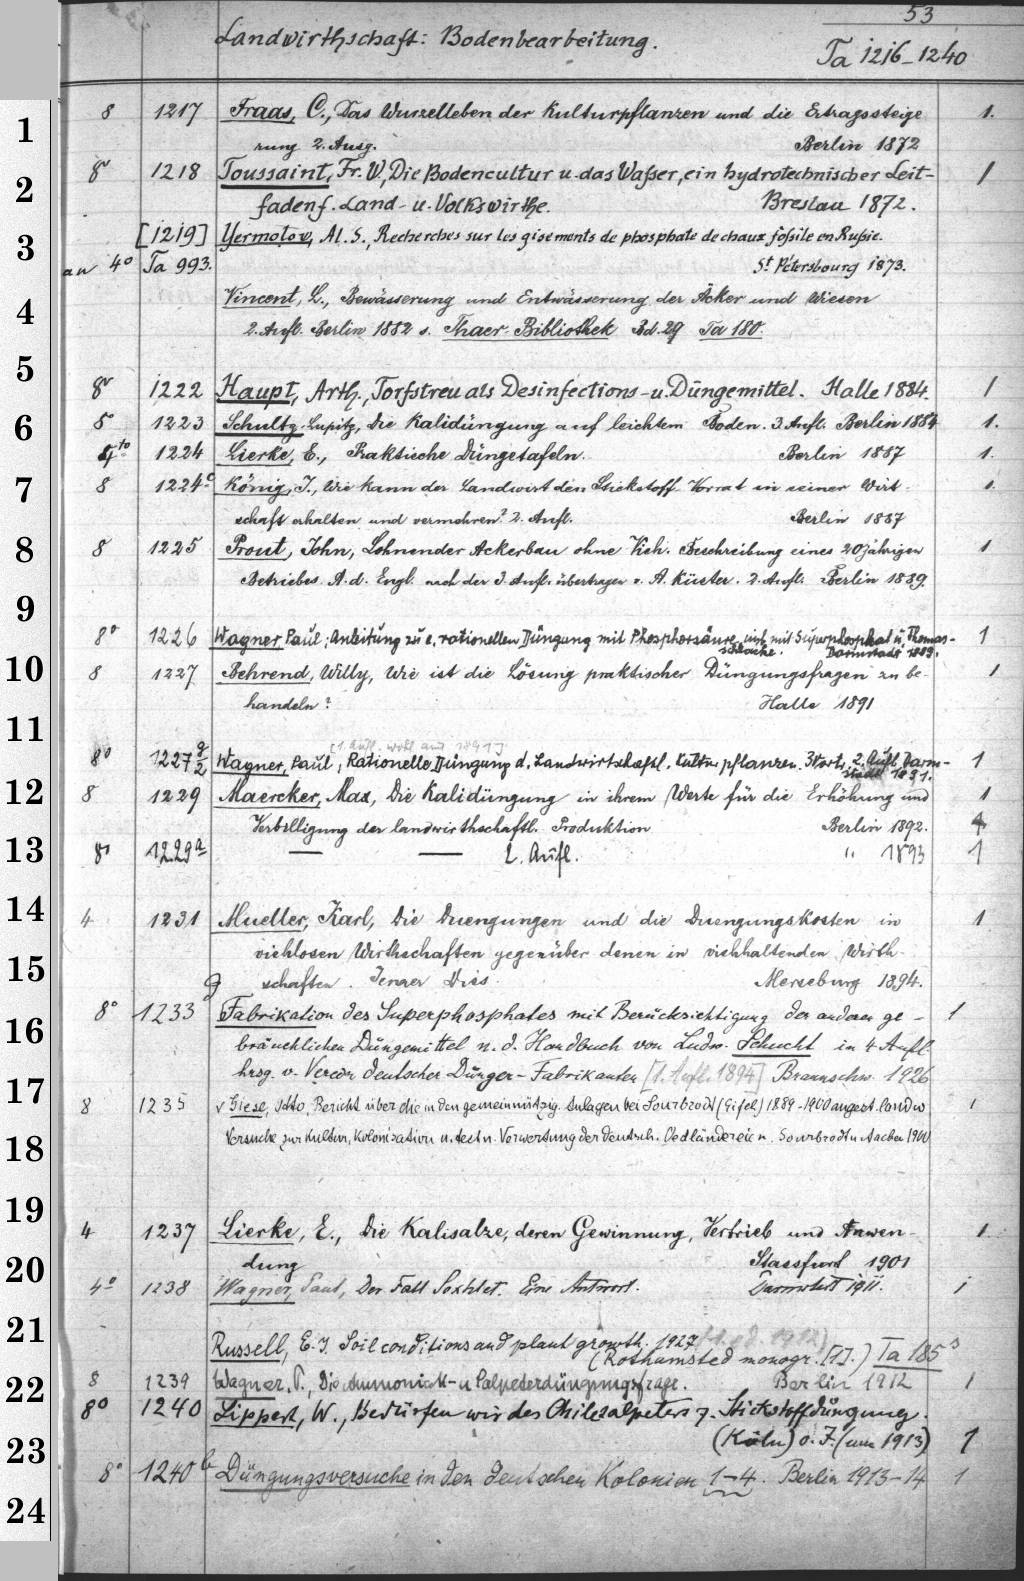 53
Landwirthschaft: Bodenbearbeitung.
Ta 1216-1240
1 8 1217 Fraas, C., Das Wurzelleben der Kulturpflanzen und die Ertragssteige 1.
rung 2. Ausg. Berlin 1872
2 8º 1218 Toussaint, Fr. W., Die Bodencultur u. das Wasser, ein hydrotechnischer Leit- 1
faden f. Land- u. Volkswirthe. Breslau 1872.
3 [1219] Yermolov, Al. S., Recherches sur les gisements de phosphate de chaux fossile en Russie.
an 4º Ta 993. St Pétersbourg 1873.
4 Vincent, L., Bewässerung und Entwässerung der Äcker und Wiesen
2. Aufl. Berlin 1882 s. Thaer-Bibliothek Bd. 29 Ta 180.
5 8º 1222 Haupt, Arth., Torfstreu als Desinfections- u. Düngemittel. Halle 1884. 1
6 1223 Schultz-Lupitz, Die Kalidüngung auf leichtem Boden. 3. Aufl. Berlin 1884 1.
4to 1224 Lierke, E., Praktische Düngetafeln. Berlin 1887 1.
7 8 1224c König, J., Wie kann der Landwirt den Stickstoff-Vorrat in seiner Wirt- 1.
schaft erhalten und vermehren? 2. Aufl. Berlin 1887
8 8 1225 Prout, John, Lohnender Ackerbau ohne Vieh. Beschreibung eines 20jährigen 1
Betriebes. A. d. Engl. nach der 3. Aufl. übertragen v. A. Küster. 2. Aufl. Berlin 1889.
9
8º 1226 Wagner Paul; Anleitung zu e. rationellen Düngung mit Phosphorsäure, mit Superphosphat u. Thomas- 1
schlacke. Darmstadt 1889.
10 8 1227 Behrend, Willy, Wie ist die Lösung praktischer Düngungsfragen zu be- 1
handeln? Halle 1891
11
[1. Aufl. wohl auch 1891]
8º 1227 a/2 Wagner, Paul, Rationelle Düngung d. Landwirtschaftl. Kulturpflanzen. 2. Aufl. Darm- 1
stadt 1891.
12 8 1229 Maercker, Max, Die Kalidüngung in ihrem Werte für die Erhöhung und 1
Verbilligung der landwirthschaftl. Produktion Berlin 1892.
13 8º 1229a — — 2. Aufl. " 1893 1
14 4 1231 Mueller, Karl, Die Duengungen und die Duengungskosten in 1
viehlosen Wirthschaften gegenüber denen in viehhaltenden Wirth-
15 schaften. Jenaer Diss. Merseburg 1894.
16 8º 1233 Fabrikation des Superphosphates mit Berücksichtigung der anderen ge- 1
bräuchlichen Düngemittel n. d. Handbuch von Ludw. Schucht in 4 Aufl.
17 hrsg. v. Verein deutscher Dünger-Fabrikanten [1. Aufl. 1894] Braunschw. 1926
8 1235 v Giese, Otto, Bericht über die in den gemeinnützig. Anlagen bei Sourbrodt (Eifel) 1889-1900 angest. landw 1
18 Versuche zur Kultur, Kolonisation u. techn. Verwertung der deutsch. Oedländereien. Sourbrodt u Aachen 1900
19 4 1237 Lierke, E., Die Kalisalze, deren Gewinnung, Vertrieb und Anwen- 1
20 dung Stassfurt 1901
4º 1238 Wagner, Paul, Der Fall Soxhlet. Eine Antwort. Darmstadt 1911. 1
21 Russell, E. J. Soil conditions and plant growth. 1927 (1. ed. 1912)
(Rothamsted monogr. [1].) Ta 185 s
22 8 1239 Wagner, P., Die Ammoniak- u Salpeterdüngungsfrage. Berlin 1912 1
8º 1240 Lippert, W., Bedürfen wir des Chilesalpeters z. Stickstoffdüngung.
23 (Köln) o. J. (um 1913) 1
8º 1240b Düngungsversuche in den deutschen Kolonien 1-4. Berlin 1913-14 1
24